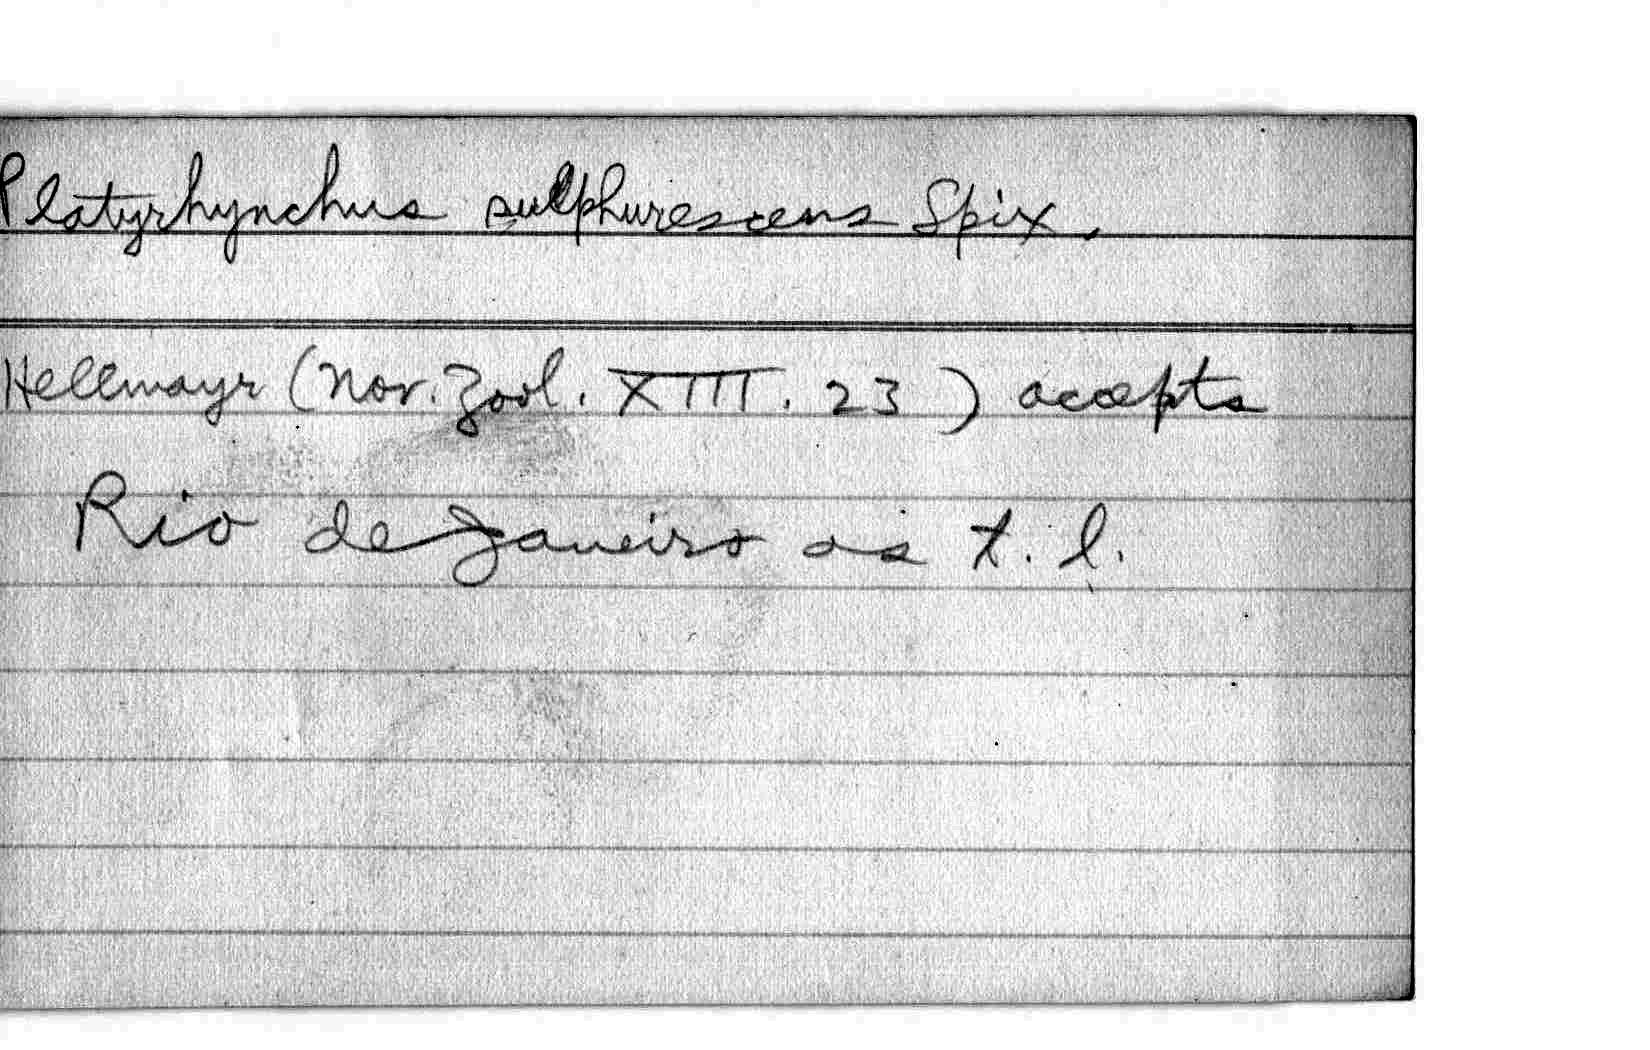 Platyrhynchus sulphurescens Spix.
Hellmayr (Nov. Zool. XIII. 23) accepts
Rio de Janeiro as t. l.